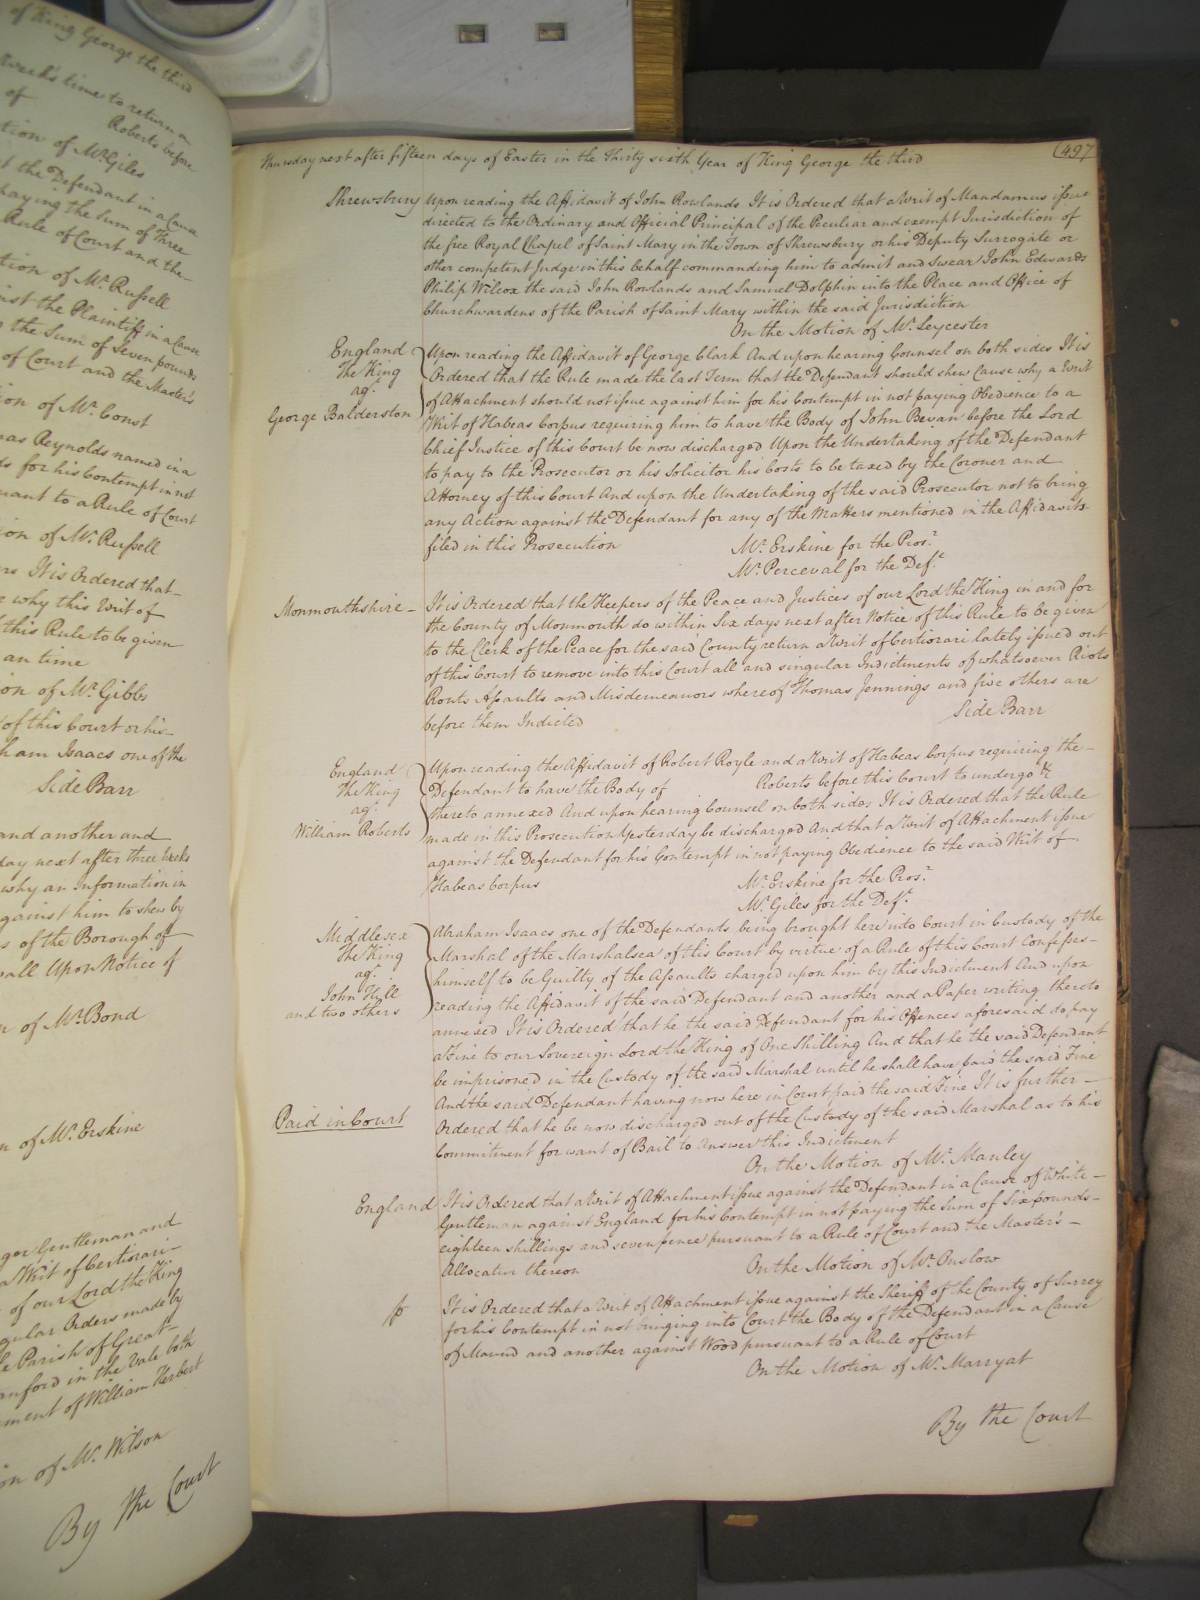 of King George the third
weeks time to return a
of Roberts before
tion of Mr. Giles
t the Defendant in a Cause
paying the Sum of Three
Rule of Court and the
tion of Mr. Russell
nst the Plaintiff in a Cause
the Sum of Seven pounds
of Court and the Master's
ion of Mr. Const
as Reynolds named in a
ds for his Contempt in not
uant to a Rule of Court
ion of Mr. Russell
It is Ordered that
why this Writ of
this Rule to be given
an time
on of Mr. Gibbs
of this Court or his
ham Isaacs one of the
Side Barr
and another and
day next after three weeks
why an Information in
gainst him to shew by
s of the Borough of
all Upon Notice of
n of Mr. Bond
n of Mr. Erskine
Gentleman and
a Writ of Certiorari
of our Lord the King
gular Orders made by
Parish of Great
anford in the Vale both
ment of William Herbert
on of Mr. Wilson
By the Court
Thursday next after fifteen days of Easter in the Thirty sixth Year of King George the third (497
Shrewsbury Upon reading the Affidavit of John Rowlands It is Ordered that a Writ of Mandamus issue
directed to the Ordinary and Official Principal of the Peculiar and exempt Jurisdiction of
the free Royal Chapel of Saint Mary in the Town of Shrewsbury or his Deputy Surrogate or
other competent Judge in this behalf commanding him to admit and Swear John Edwards
Philip Wilcox the said John Rowlands and Samuel Dolphin into the Place and Office of
Churchwardens of the Parish of Saint Mary within the said Jurisdiction
On the Motion of Mr. Leycester
England Upon reading the Affidavit of George Clark And upon hearing Counsel on both sides It is
The King Ordered that the Rule made the last Term that the Defendant should shew Cause why a Writ
agt. of Attachment should not issue against him for his Contempt in not paying Obedience to a
George Balderston Writ of Habeas Corpus requiring him to have the Body of John Bevan before the Lord
Chief Justice of this Court be now discharged Upon the Undertaking of the Defendant
to pay to the Prosecutor or his Solicitor his Costs to be taxed by the Coroner and
Attorney of this Court And upon the Undertaking of the said Prosecutor not to bring
any Action against the Defendant for any of the Matters mentioned in the Affidavits
filed in this Prosecution Mr. Erskine for the Pros.r
Mr. Perceval for the Def.t
Monmouthshire It is Ordered that the Keepers of the Peace and Justices of our Lord the King in and for
the County of Monmouth do within Six days next after Notice of this Rule to be given
to the Clerk of the Peace for the said County return a Writ of Certiorari lately issued out
of this Court to remove into this Court all and singular Indictments of whatsoever Riots
Routs Assaults and Misdemeanors whereof Thomas Jennings and five others are
before them Indicted Side Barr
England Upon reading the Affidavit of Robert Royle and a Writ of Habeas Corpus requiring the
The King Defendant to have the Body of Roberts before this Court to undergo &c
agt. thereto annexed And upon hearing Counsel on both sides It is Ordered that the Rule
William Roberts made in this Prosecution Yesterday be discharged And that a Writ of Attachment issue
against the Defendant for his Contempt in not paying Obedience to the said Writ of
Habeas Corpus Mr. Erskine for the Pros.r
Mr. Giles for the Def.t
Middlesex Abraham Isaacs one of the Defendants being brought here into Court in Custody of the
The King Marshal of the Marshalsea of this Court by virtue of a Rule of this Court Confesses
agt. himself to be Guilty of the Assaults charged upon him by this Indictment And upon
John Hall reading the Affidavit of the said Defendant and another and a Paper writing thereto
and two others annexed It is Ordered that he the said Defendant for his Offences aforesaid do pay
a Fine to our Sovereign Lord the King of One Shilling And that he the said Defendant
be imprisoned in the Custody of the said Marshal until he shall have paid the said Fine
And the said Defendant having now here in Court paid the said Fine It is further
Paid in Court Ordered that he be now discharged out of the Custody of the said Marshal as to his
Commitment for want of Bail to Answer this Indictment
On the Motion of Mr. Manley
England It is Ordered that a Writ of Attachment issue against the Defendant in a Cause of White
Gentleman against England for his Contempt in not paying the Sum of Six pounds
eighteen shillings and seven pence pursuant to a Rule of Court and the Master's
Allocatur thereon On the Motion of Mr. Onslow
It is Ordered that a Writ of Attachment issue against the Sheriff of the County of Surrey
for his Contempt in not bringing into Court the Body of the Defendant in a Cause
of Maund and another against Wood pursuant to a Rule of Court
On the Motion of Mr. Marryat
By the Court